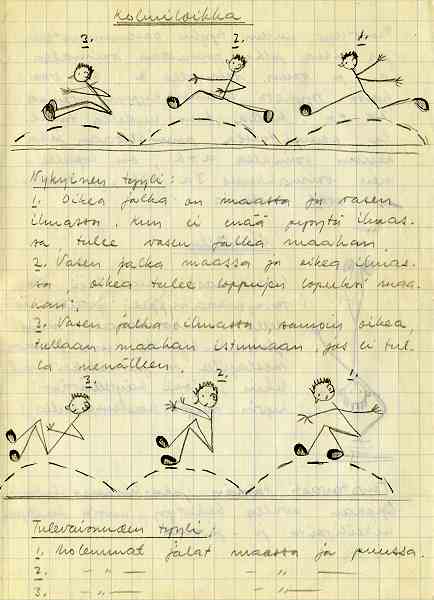 Kolmiloikka
3. 2. 1.
Nykyinen tyyli:
1. Oikea jalka on maassa ja vasen
ilmassa, kun ei enää pysytä ilmas-
sa, tulee vasen jalka maahan.
2. Vasen jalka maassa ja oikea ilmas-
sa, oikea tulee loppujen lopuksi maa-
han.
3. Vasen jalka ilmassa, samoin oikea,
tullaan maahan istumaan, jos ei tul-
la nenälleen.
3. 2. 1.
Tulevaisuuden tyyli:
1. Molemmat jalat maassa ja puussa.
2. — " — — " —
3. — " — — " —